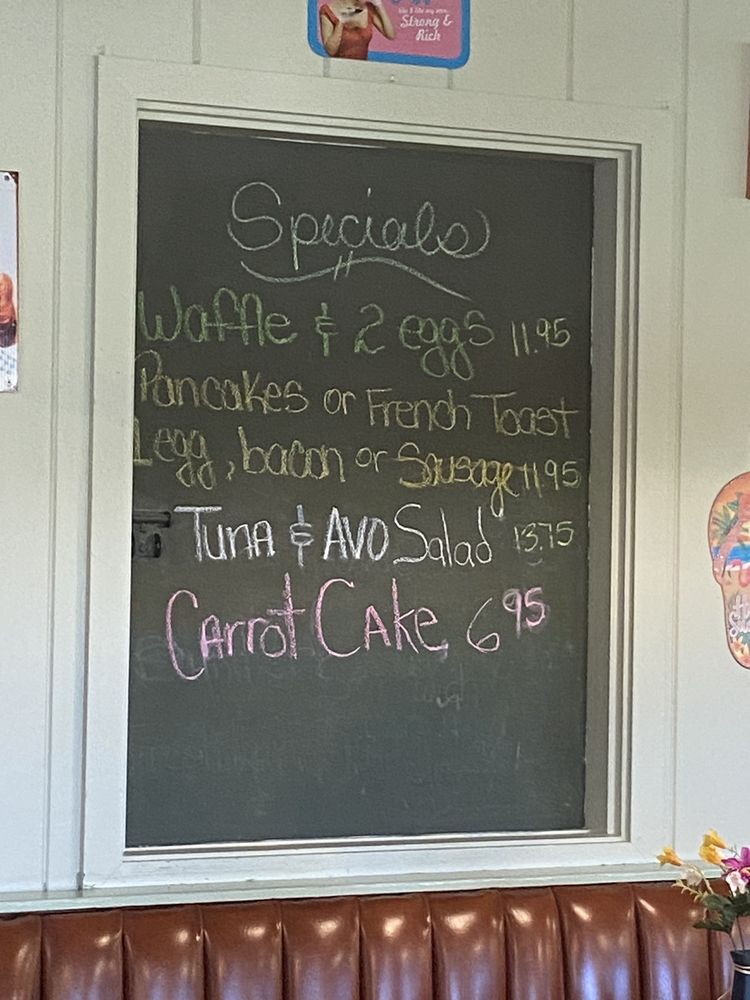 like I like my men:
Strong &
Rich
Specials
Waffle & 2 eggs 11.95
Pancakes or French Toast
1 egg, bacon or Sausage 11.95
Tuna & AVO Salad 13.75
Carrot Cake 6 95